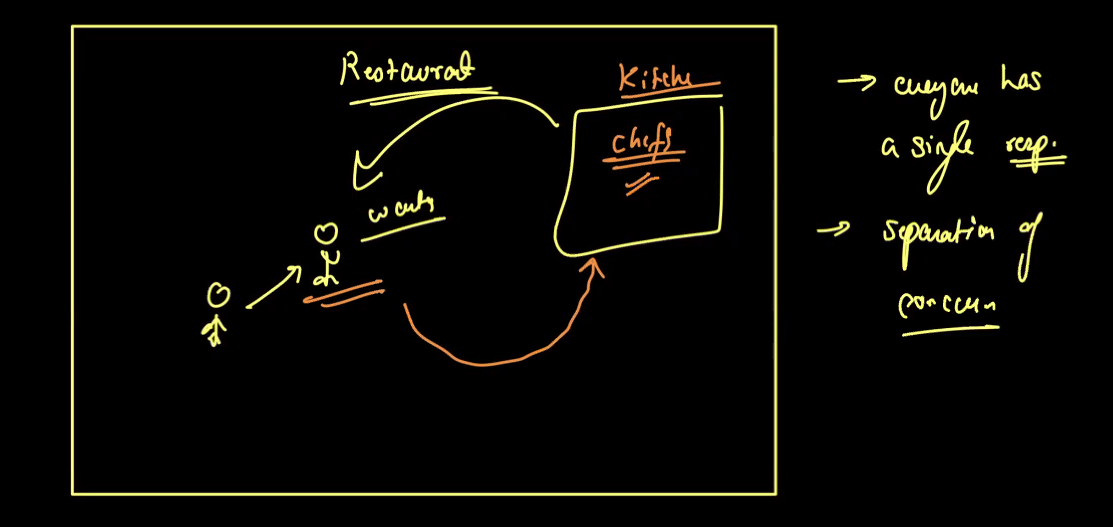 Restaurat
Kitche
chefs
waity
→ everyone has
a single resp.
→ separation of
concern